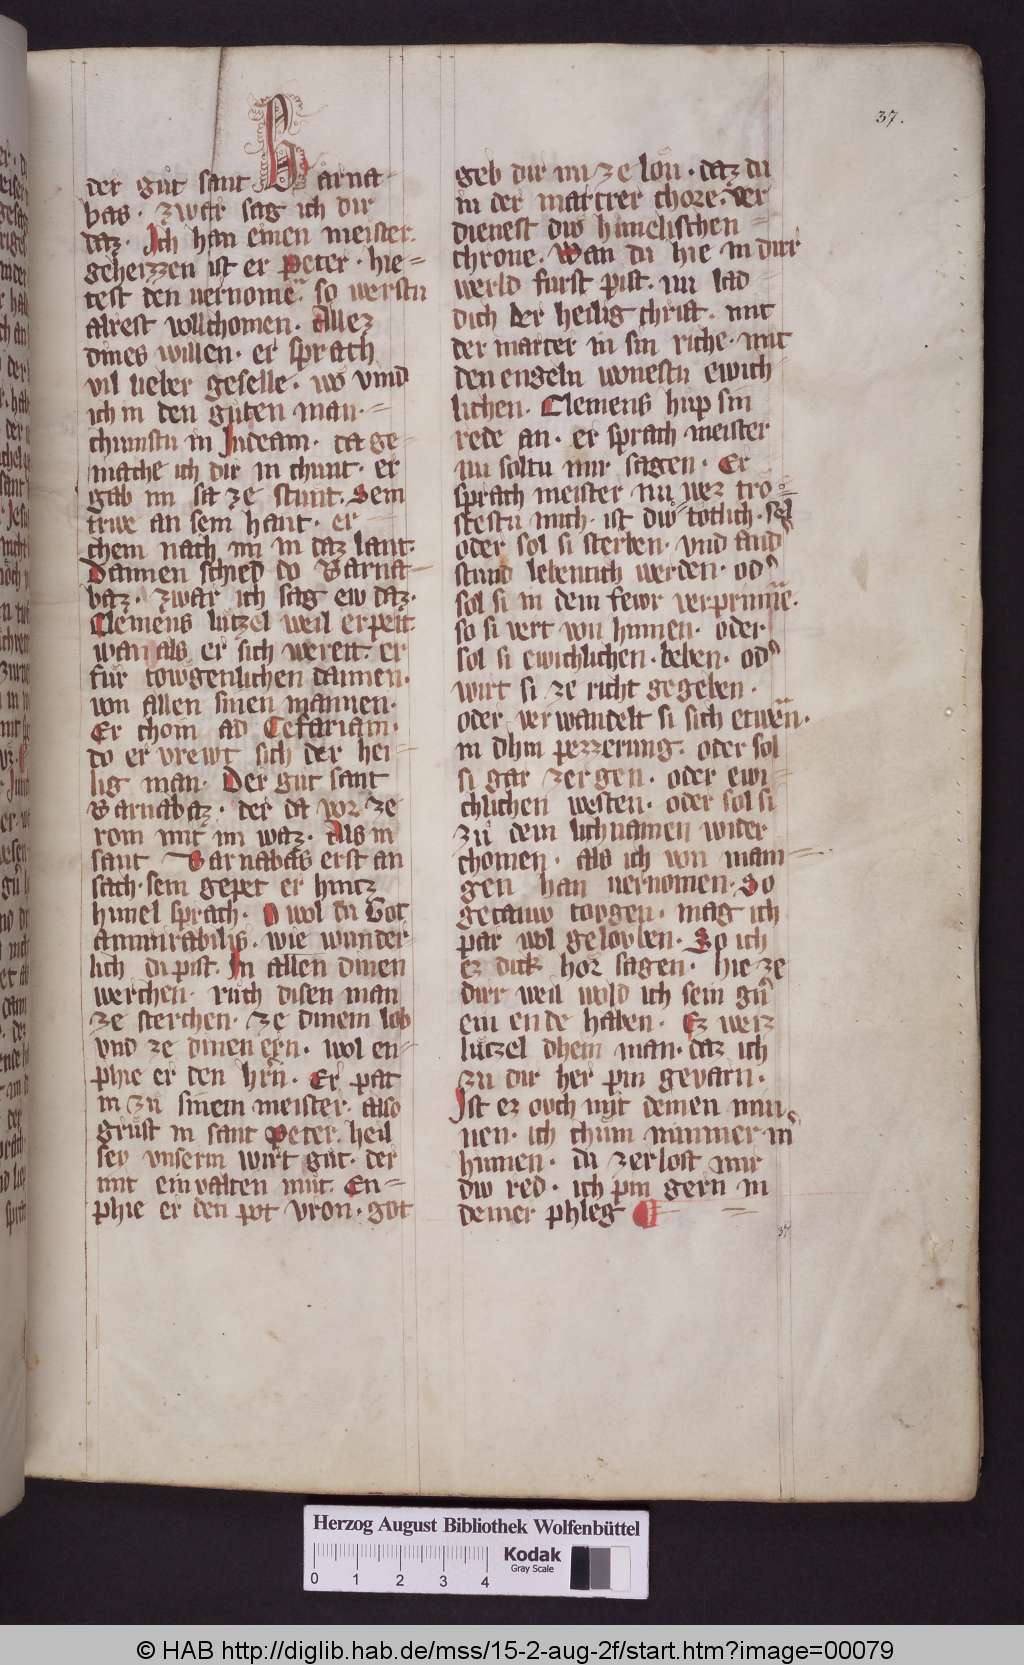 37.
der gůt sant Barna
bas · zwar sag ich dir
daz · Ich han einen meister ·
geheizzen ist er Peter · hie =
test den uernomē · so werstu
alrest vollchomen · Allez
dines willen · er sprach
vil lieber geselle · wo vind
ich in den gůten man · =
chumstu in Judeam · da ge =
mache ich dir in chunt · er
gab im sa ze stunt · Sein
triwe an sein hant · er =
chem nach im in daz lant ·
Dannen schied do Barna =
baz · zwar ich sag ew daz ·
Clemens lützel weil erpeit
wan als er sich wereit · er
für towgenlichen dannen ·
von allen sinen mannen ·
Er chom ad Cesariam ·
do er vrewt sich der hei =
lig man · Der gut sant
Barnabaz · der da vor ze
rom mit im waz · Als in
sant Barnabas erst an
sach · sein gepet er hintz
himel sprach · O wol du Got
ammirabilis · wie wunder
lich du pist · In allen dinen
werchen · rüch disen man
ze sterchen · ze dinem lob
vnd ze dinen ern · wol en =
phie er den hrn · Er pat
in zu sinem meister · also
grůst in sant Peter · heil
sey vnserm wirt gůt · der
mit einvalten mut · En =
phie er den pot vron · got
geb dir im ze lon · daz du
in der martrer chore · der
dienest diw himelischen =
chrone · Wan du hie in dirr
werld furst pist · nu lad =
dich der heilig christ · mit
der marter in sin riche · mit
den engeln wonestu ewich
lichen · Clemens hup sin
rede an · er sprach meister
nu soltu mir sagen · Er
sprach meister nu wez trö =
stestu mich · ist diw totlich · sel
oder sol si sterben · vnd and
stund lebentich werden · od
sol si in dem fewr verprinnē ·
so si vert von hinnen · oder
sol si ewichlichen · leben · od
wirt si ze richt gegeben ·
oder verwandelt si sich etwēn ·
in dhin pezzerung · oder sol
si gar zergen · oder ewi =
chlichen westen · oder sol si
zů dem lichnamen wider
chomen · als ich von man =
gen han uernomen · So
getauw torgen · mag ich
par wol gelovben · So ich
ez dick hor sagen · hie ze
dirr weil wold ich sein gn
ein ende haben · Ez weiz
lützel dhein man · daz ich
zu dir her pin gevarn ·
Ist ez ovch mit deinen min
nen · ich chum nimmer in
hinnen · du zerlost mir
diw red · ich pin gern in
deiner phleg
37
Herzog August Bibliothek Wolfenbüttel
0 1 2 3 4
Kodak
Gray Scale
© HAB http://diglib.hab.de/mss/15-2-aug-2f/start.htm?image=00079